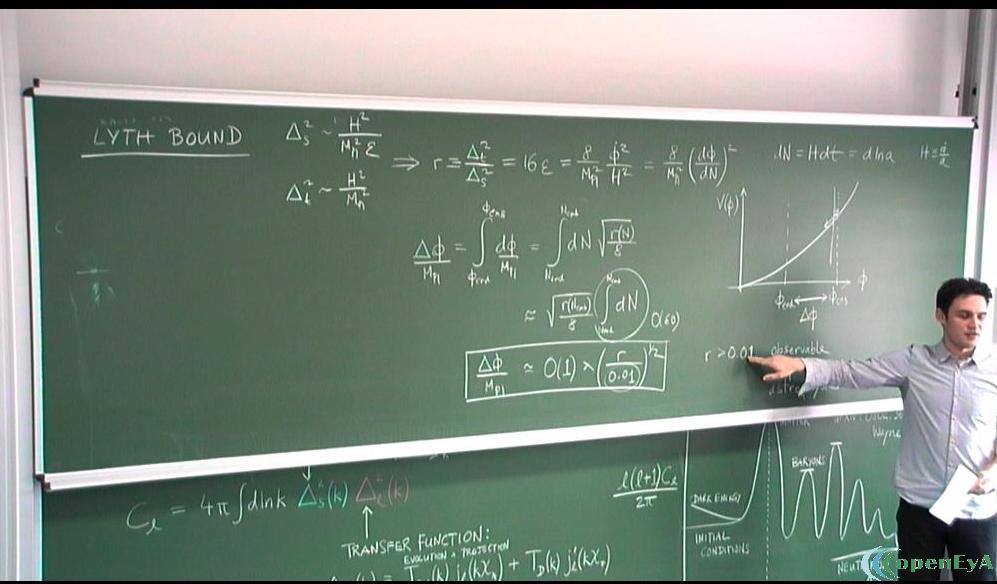 LYTH BOUND
Δ_s² ~ H²/(M_Pl² ε)
Δ_t² ~ H²/M_Pl²
⇒ r ≡ Δ_t²/Δ_s² = 16ε = 8/M_Pl² φ̇²/H² = 8/M_Pl² (dφ/dN)²
dN = Hdt = dlna
H ≡ ȧ/a
Δφ/M_Pl = ∫_{φ_end}^{φ_cmb} dφ/M_Pl = ∫_{N_end}^{N_cmb} dN √(r(N)/8)
≈ √(r(N_cmb)/8) ∫_{N_end}^{N_cmb} dN O(60)
Δφ/M_Pl ≈ O(1) × (r/0.01)^{1/2}
V(φ)
φ
φ_end
φ_cmb
Δφ
r > 0.01 observable
C_ℓ = 4π ∫ dlnk Δ_s²(k) Δ_ℓ²(k)
TRANSFER FUNCTION:
EVOLUTION + PROJECTION
+ T_D(k) j_ℓ'(kχ_*)
ℓ(ℓ+1)C_ℓ/2π
DARK ENERGY
INITIAL
CONDITIONS
BARYONS
Wayne
openEyA